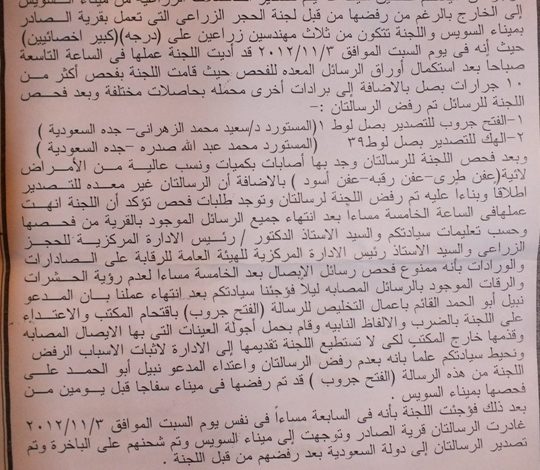 إلى الخارج بالرغم من رفضها من قبل لجنة الحجر الزراعى التى تعمل بقرية الصادر
بميناء السويس واللجنة تتكون من ثلاث مهندسين زراعين على (درجه)(كبير اخصائيين)
حيث أنه فى يوم السبت الموافق ٢٠١٢/١١/٣ قد أديت اللجنة عملها فى الساعة التاسعة
صباحا بعد استكمال أوراق الرسائل المعده للفحص حيث قامت اللجنة بفحص أكثر من
١٠ جرارات بصل بالاضافة إلى برادات أخرى محمله بحاصلات مختلفة وبعد فحص
اللجنة للرسائل تم رفض الرسالتان :-
١-الفتح جروب للتصدير بصل لوط ١(المستورد د/سعيد محمد الزهرانى- جده السعودية )
٢-الهك للتصدير بصل لوط٣٩ (المستورد محمد عبد الله صدره -جده السعودية )
وبعد فحص اللجنة للرسالتان وجد بها أصابات بكميات ونسب عالية من الأمراض
لاتية(عفن طرى-عفن رقبه-عفن أسود ) بالاضافة أن الرسالتان غير معده للتصدير
اطلاقا وبناءا عليه تم رفض اللجنة لرسالتان وتوجد طلبات فحص تؤكد أن اللجنة انهت
عملهافى الساعة الخامسة مساءا بعد انتهاء جميع الرسائل الموجود بالقرية من فحصها
وحسب تعليمات سيادتكم والسيد الاستاذ الدكتور / رئيس الادارة المركزية للحجز
الزراعى والسيد الاستاذ رئيس الادارة المركزية للهيئة العامة للرقابة على الصادارات
والوردات بأنه ممنوع فحص رسائل الابصال بعد الخامسة مساءاً لعدم رؤية الحشرات
والرقات الموجود بالرسائل المصابه ليلاً فوجئنا سيادتكم بعد انتهاء عملنا بان المدعو
نبيل أبو الحمد القائم باعمال التخليص للرسالة (الفتح جروب) باقتحام المكتب والاعتداء
على اللجنة بالضرب والالفاظ النابيه وقام بحمل أجولة العينات التى بها الابصال المصابه
وقذمها خارج المكتب لكى لا تستطيع اللجنة تقديمها إلى الادارة لاثبات الاسباب الرفض
ونحيط سيادتكم علما بانه بعدم رفض الرسالتان واعتداء المدعو نبيل أبو الحمد على
اللجنة من هذه الرسالة (الفتح جروب ) قد تم رفضها فى ميناء سفاجا قبل يومين من
فحصها بميناء السويس .
بعد ذلك فوجئت اللجنة بأنه فى السابعة مساءاً فى نفس يوم السبت الموافق ٢٠١٢/١١/٣
غادرت الرسالتان قرية الصادر وتوجهت إلى ميناء السويس وتم شحنهم على الباخرة وتم
تصدير الرسالتان إلى دولة السعودية بعد رفضهم من قبل اللجنة .